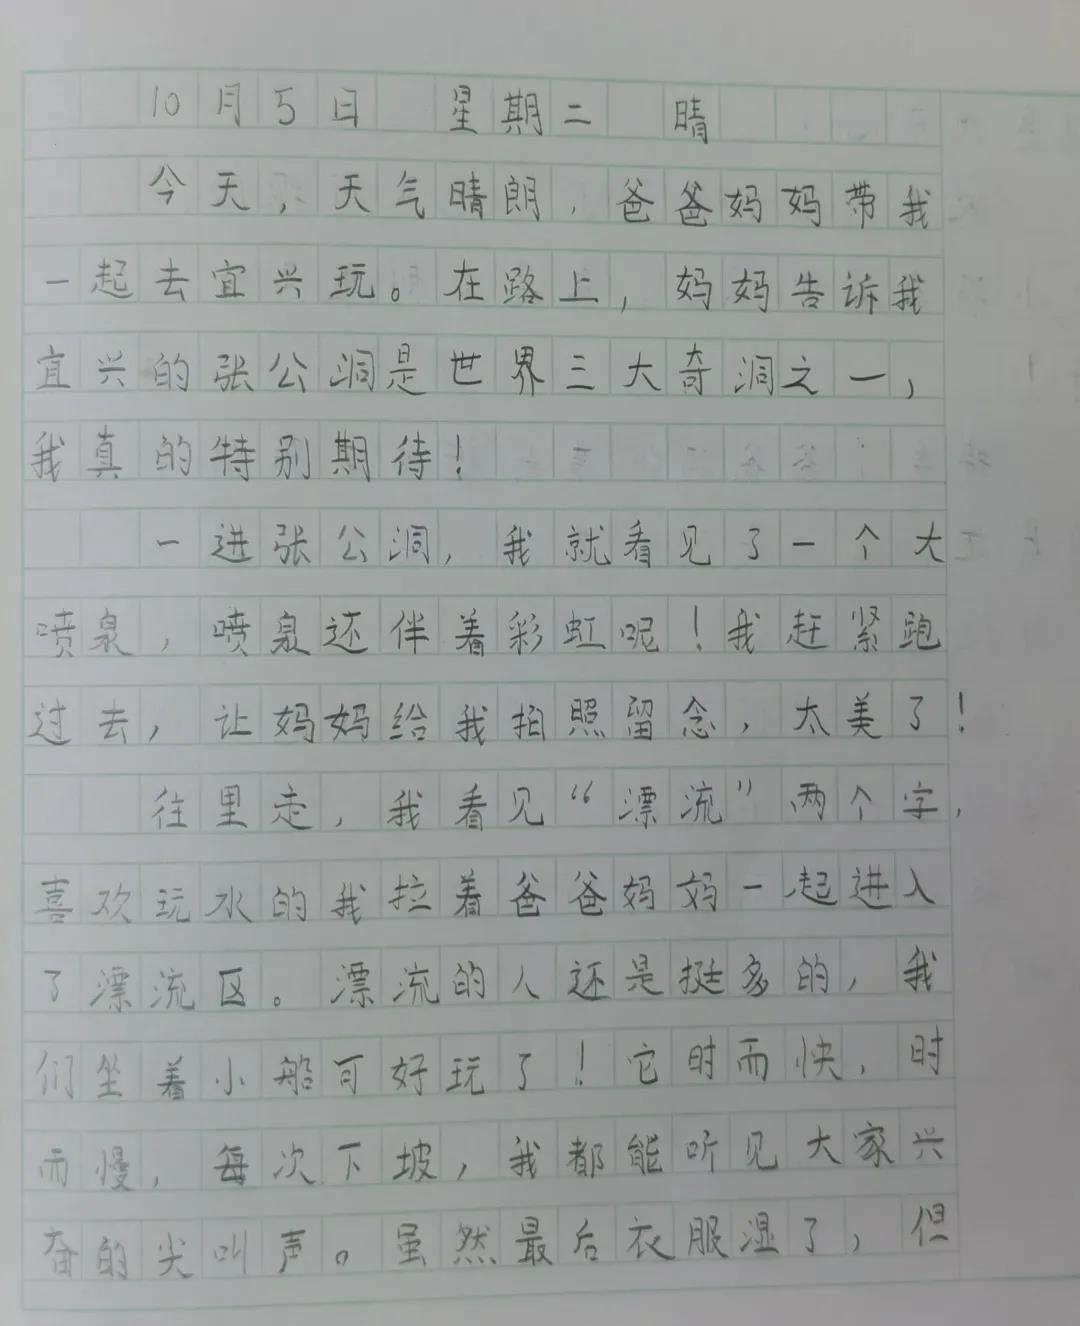 10月5日 星期二 晴
今天,天气晴朗,爸爸妈妈带我
一起去宜兴玩。在路上,妈妈告诉我
宜兴的张公洞是世界三大奇洞之一,
我真的特别期待!
一进张公洞,我就看见了一个大
喷泉,喷泉还伴着彩虹呢!我赶紧跑
过去,让妈妈给我拍照留念,太美了!
往里走,我看见“漂流”两个字,
喜欢玩水的我拉着爸爸妈妈一起进入
了漂流区。漂流的人还是挺多的,我
们坐着小船可好玩了!它时而快,时
而慢,每次下坡,我都能听见大家兴
奋的尖叫声。虽然最后衣服湿了,但